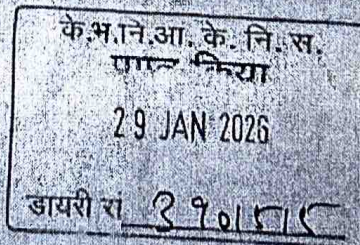 के.भ.नि.आ. के. नि. स.
प्राप्त किया
29 JAN 2026
डायरी सं